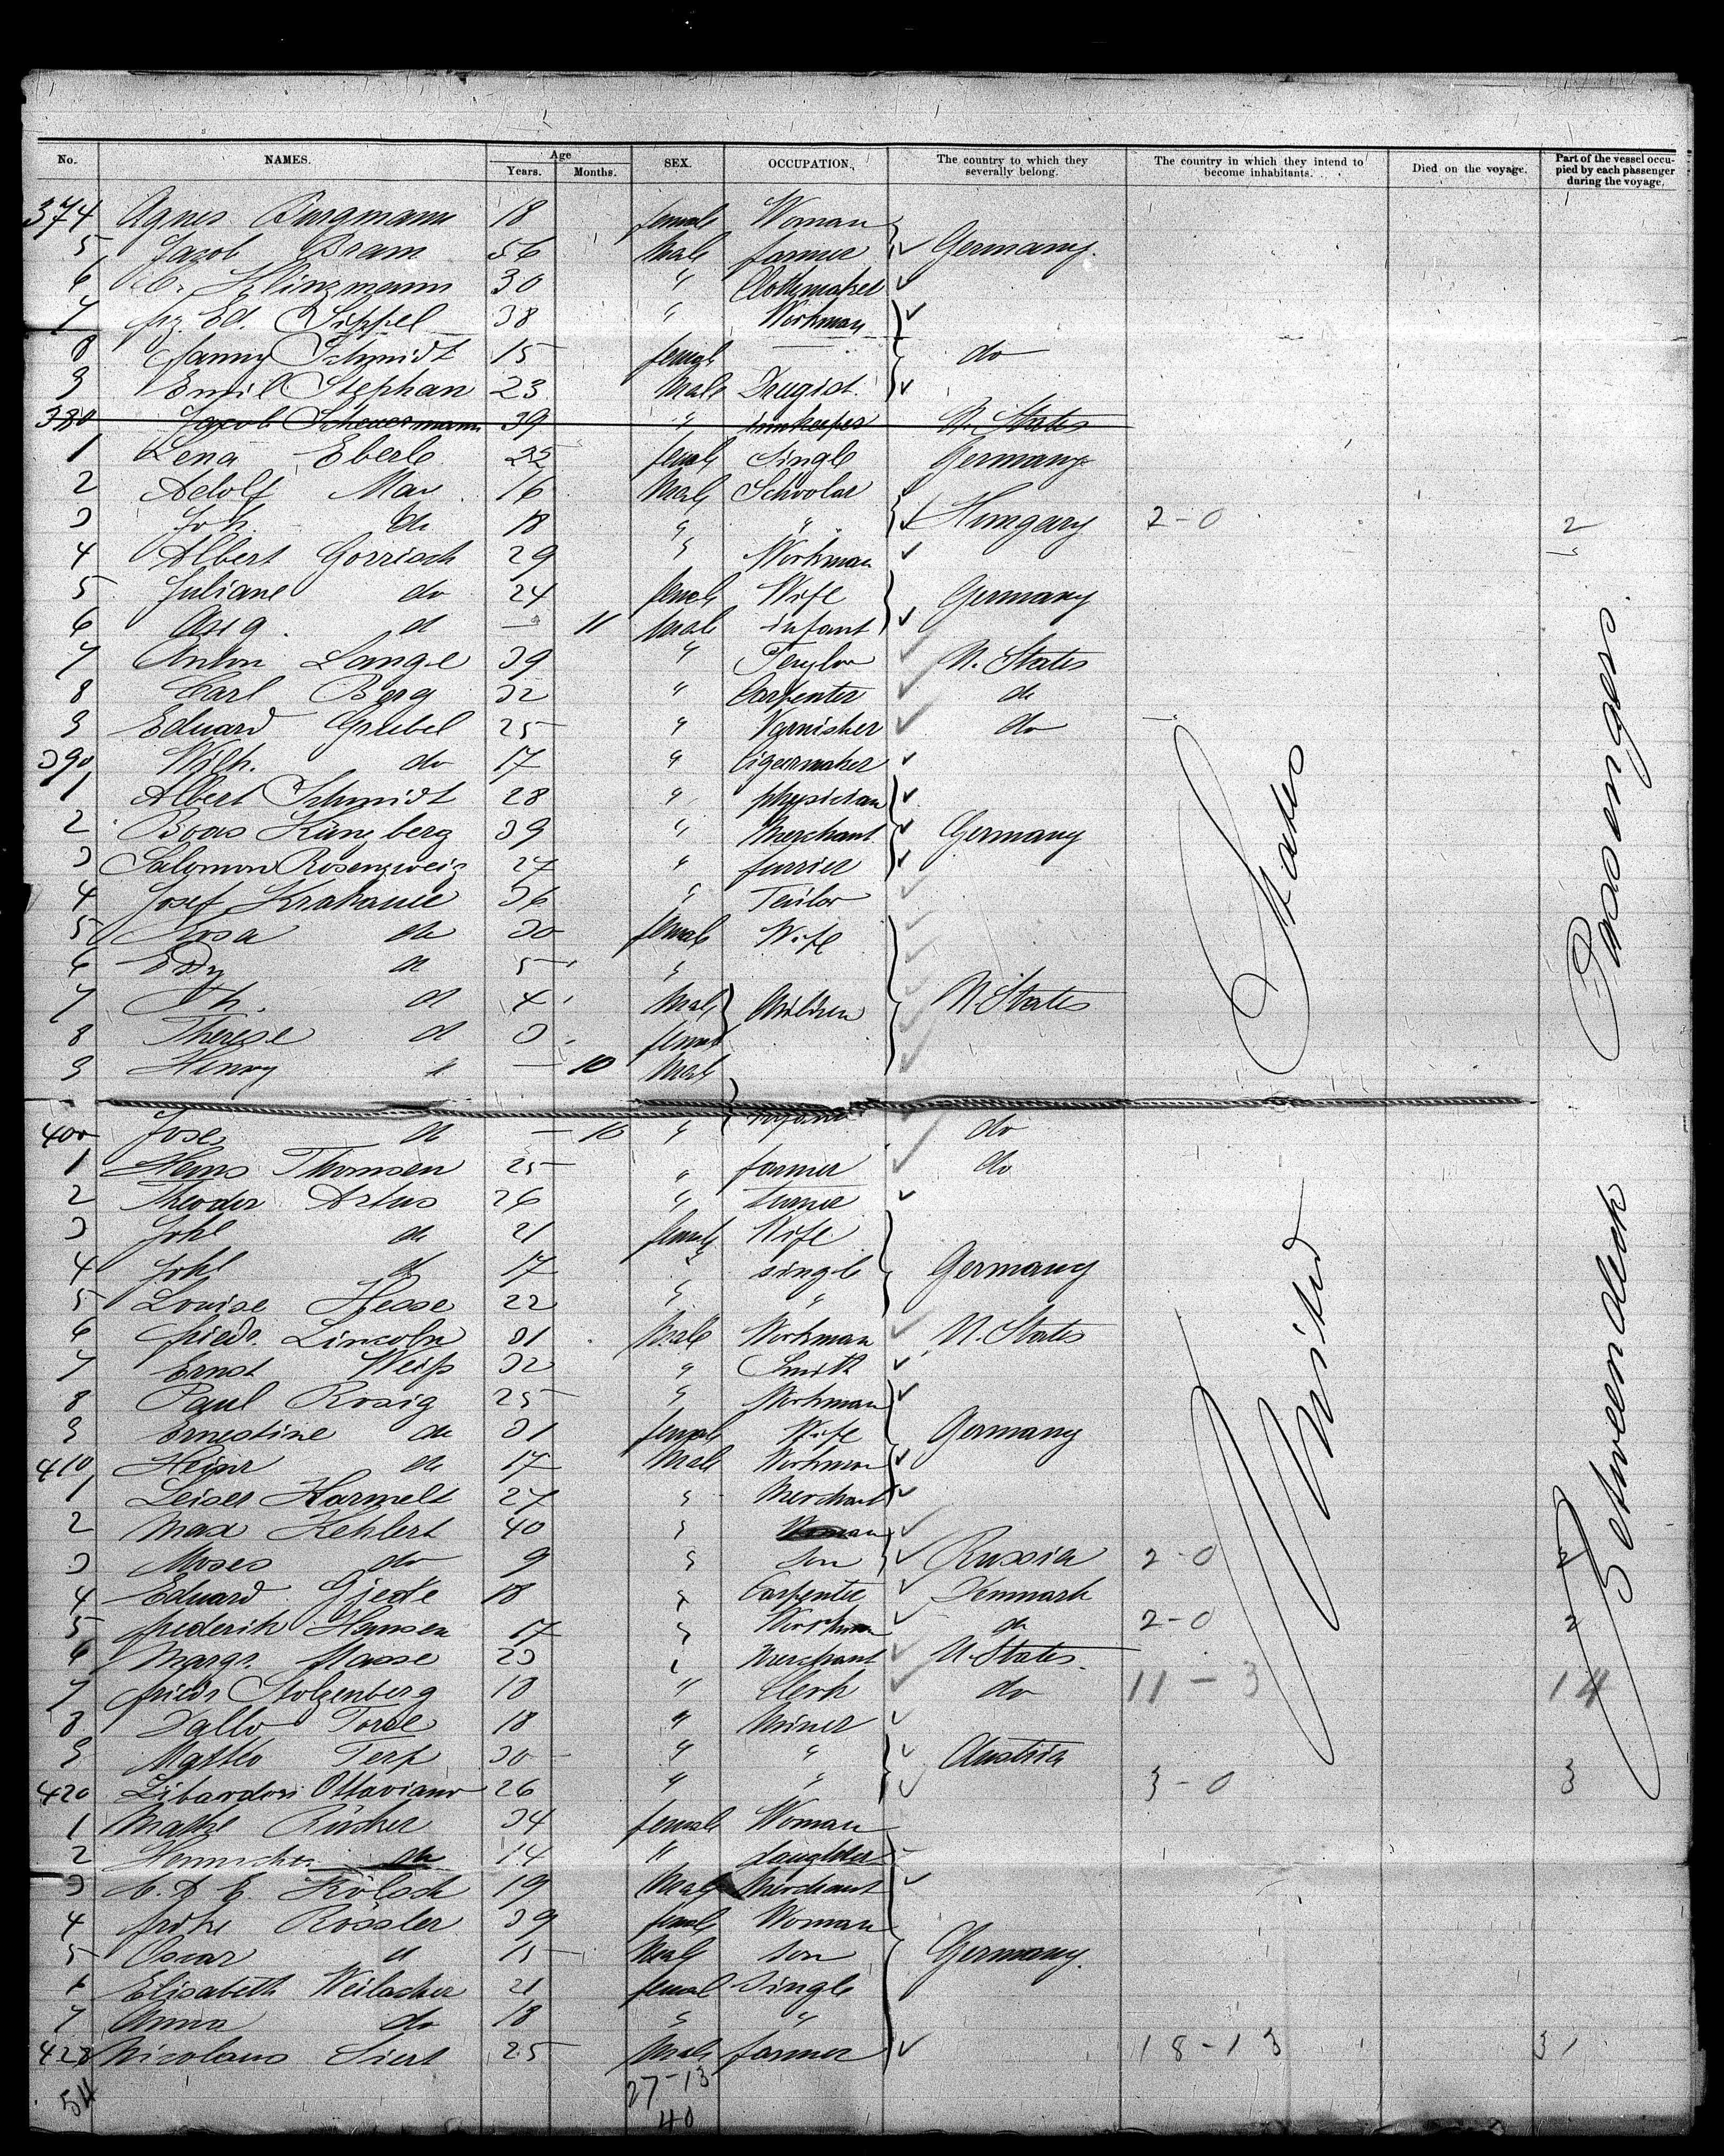 No. NAMES. Age Years. Months. SEX. OCCUPATION. The country to which they severally belong. The country in which they intend to become inhabitants. Died on the voyage. Part of the vessel occupied by each passenger during the voyage.
374 Agnes Burgmann 18 female Woman
5 Jacob Bram 56 Male farmer Germany.
6 C. Klinzmann 30 " Clothmaker
7 frz Ed. Sippel 38 " Workman
8 Fanny Schmidt 15 female — do
9 Emil Stephan 23 Male Drugist.
380 Jacob Scheuermann 39 " innkeeper U. States
1 Lena Eberle 22 female Single Germany
2 Adolf May 16 Male Schoolar
3 Joh. do 18 " " Hungary 2-0 2
4 Albert Gorrisch 29 " Workman
5 Juliane do 24 female Wife Germany
6 d — 11 Male infant
7 Anton Lange 39 " U. States
8 Carl Berg 32 " Carpenter do
9 Eduard Griebel 25 " Varnisher do
390 Wilh. do 17 " Cigarmaker
1 Albert Schmidt 28 " physician
2 Boas Künzberg 39 " Merchant Germany
3 Salomon Rosenzweig 27 " furrier
4 Josef Krakauer 36 " Tailor
5 Rosa do 30 female Wife
6 do 5 "
7 do 4 Male Children U. States
8 Therese do 3 female
9 Henry " — 10 Male
400 Jose do — 10 " infant do
1 Hans Thomsen 25 " farmer do
2 Theodor Artus 26 "
3 do 21 female Wife
4 do 17 " single Germany
5 Louise Hesse 22 " "
6 friedr. Lincoln 31 Male Workman U. States
7 Ernst Weiß 32 " Smith
8 Paul Rosig 25 " Workman
9 Ernestine do 31 female Wife Germany
410 Heinr do 17 Male Workman
1 Leiser Karmelt 27 " Merchant
2 Max Kehlert 40 "
3 Moses do 9 " Son Russia 2-0 2
4 Eduard Gjede 18 " Carpenter Denmark
5 frederik Hansen 17 " Workman do 2-0 2
6 Margr. Haase 23 " Merchant U. States.
7 friedr Stolzenberg 18 " Clerk do 11-3 14
8 18 " Miner
9 Matteo 30 " " Austria
420 Libardoni Ottaviano 26 " " 3-0 3
1 34 female Woman
2 do 14 " daughter
3 C. D. E. Kölsch 19 Male Merchant
4 Rössler 39 female Woman
5 Oscar d 15 Male Son Germany.
6 Elisabeth Weilacher 21 female Single
7 Anna do 18 " "
428 Nicolaus Siert 25 Male farmer 18-13 31
54 27-13
40
United States
Betweendeck Passengers.